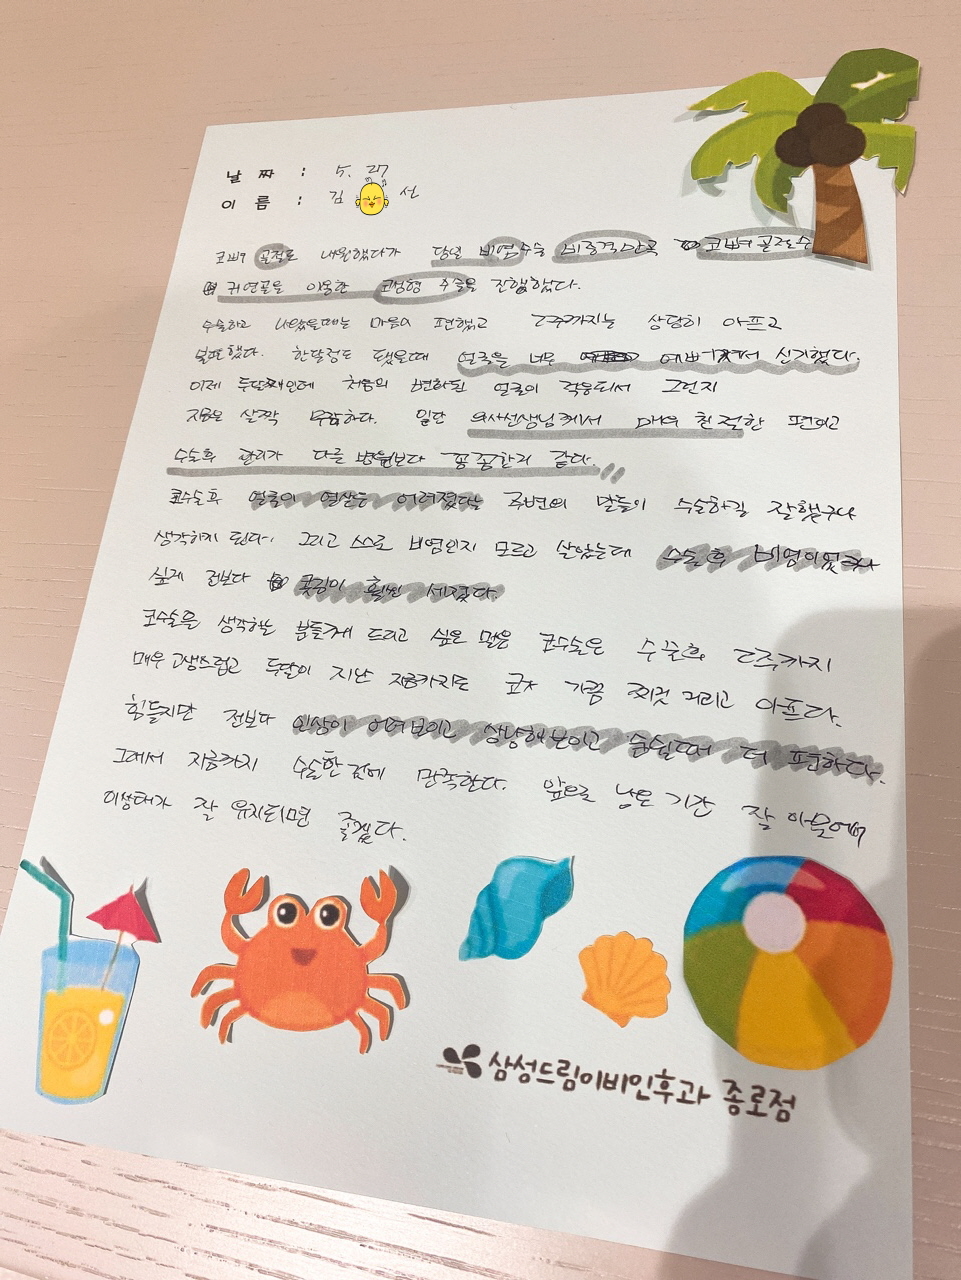 날 짜 : 5. 27
이 름 : 김 선
코뼈 골절로 내원했다가 당널 비염수술 비중격만곡 코뼈 골절수
귀연골을 이용한 코성형 수술을 진행했다.
수술하고 나왔을때는 마음이 편했고 2주까지는 상당히 아프고
불편했다. 한달정도 됐을때 얼굴은 너무 예뻐져서 신기했다.
이제 두달째인데 처음의 변화된 얼굴이 적응되서 그런지
지금은 살짝 무감하다. 일단 의사선생님께서 매우 친절한 편이고
수술후 관리가 다른 병원보다 꼼꼼한거 같다.
코수술후 얼굴이 열살은 어려졌다는 주변의 말들이 수술하길 잘했구나
생각하게 된다. 그리고 스스로 비염인지 모르고 살았는데 수술후 비염이었구나
싶게 전보다 콧김이 훨씬 세졌다.
코수술을 생각하는 분들께 드리고 싶은 말은 코수술은 수술후 2주까지
매우 고생스럽고 두달이 지난 지금까지도 코가 가끔 찌릿 거리고 아프다.
힘들지만 전보다 인상이 어려보이고 상냥해보이고 숨쉴때 더 편하다.
그래서 지금까지 수술한것에 만족한다. 앞으로 남은 기간 잘 아물어서
이상태가 잘 유지되면 좋겠다.
삼성드림이비인후과 종로점